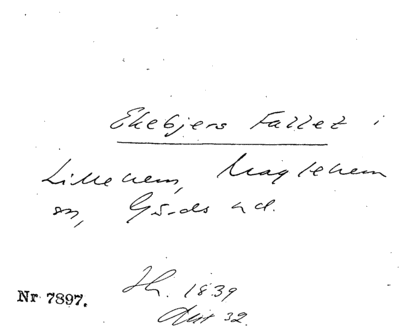 Ekebjers Fallet i
Lillehem, Maglehem
sn, Gärds hd.
Nr 7897.
Th. 1839
Akt 32.